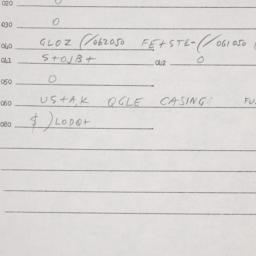 020 0
030 0
040 GLOZ (/062050 FE+STL-(/061050
041 S+01B+ 042 0
050 0
060 US+A,K QGLE CASING: FU
080 $ )LODQ+